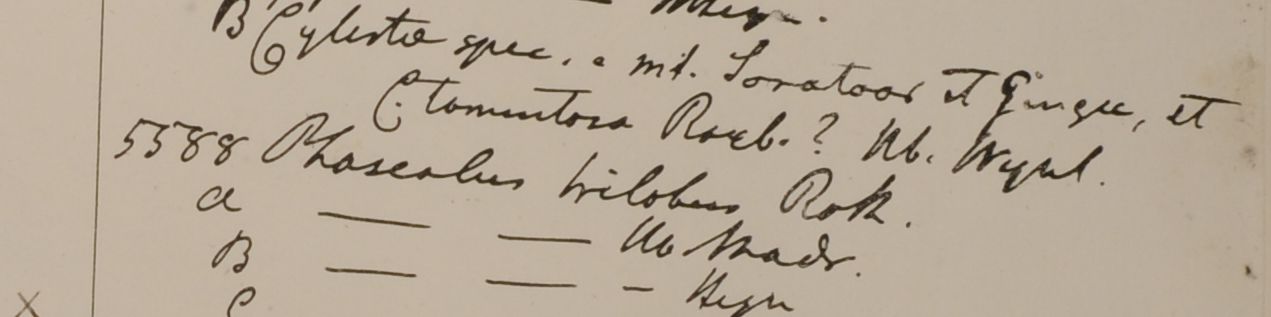 B Cylista spec. e mt. Sonatoor et Gingee, et
C. tomentosa Roxb.? Hb. Wight.
5588 Phaseolus trilobus Roth.
a — — Hb Madr.
B — — - Heyn
C